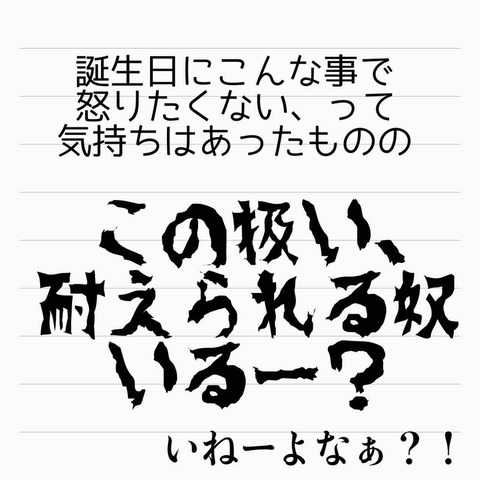 誕生日にこんな事で
怒りたくない、って
気持ちはあったものの
この扱い、
耐えられる奴
いるー？
いねーよなぁ？！